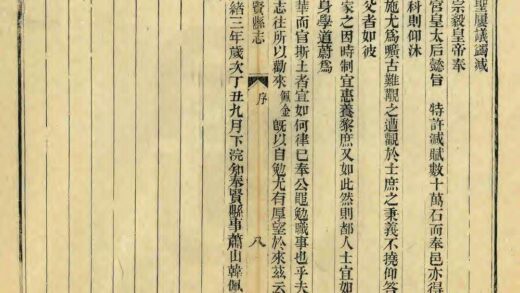 聖屢議蠲減
宗毅皇帝奉
宮皇太后懿旨 特許減賦數十萬石而奉邑亦得
科則仰沐
施尤為曠古難覯之遭觀於士庶之秉義不撓仰答
父者如彼
家之因時制宜惠養黎庶又如此然則都人士宜如
身學道蘄為
華而官斯土者宜如何律已奉公黽勉職事也乎夫
志往所以勸來佩金既以自勉尤有厚望於來茲云
賢縣志 序 八
緒三年歲次丁丑九月下浣知奉賢縣事蕭山韓佩